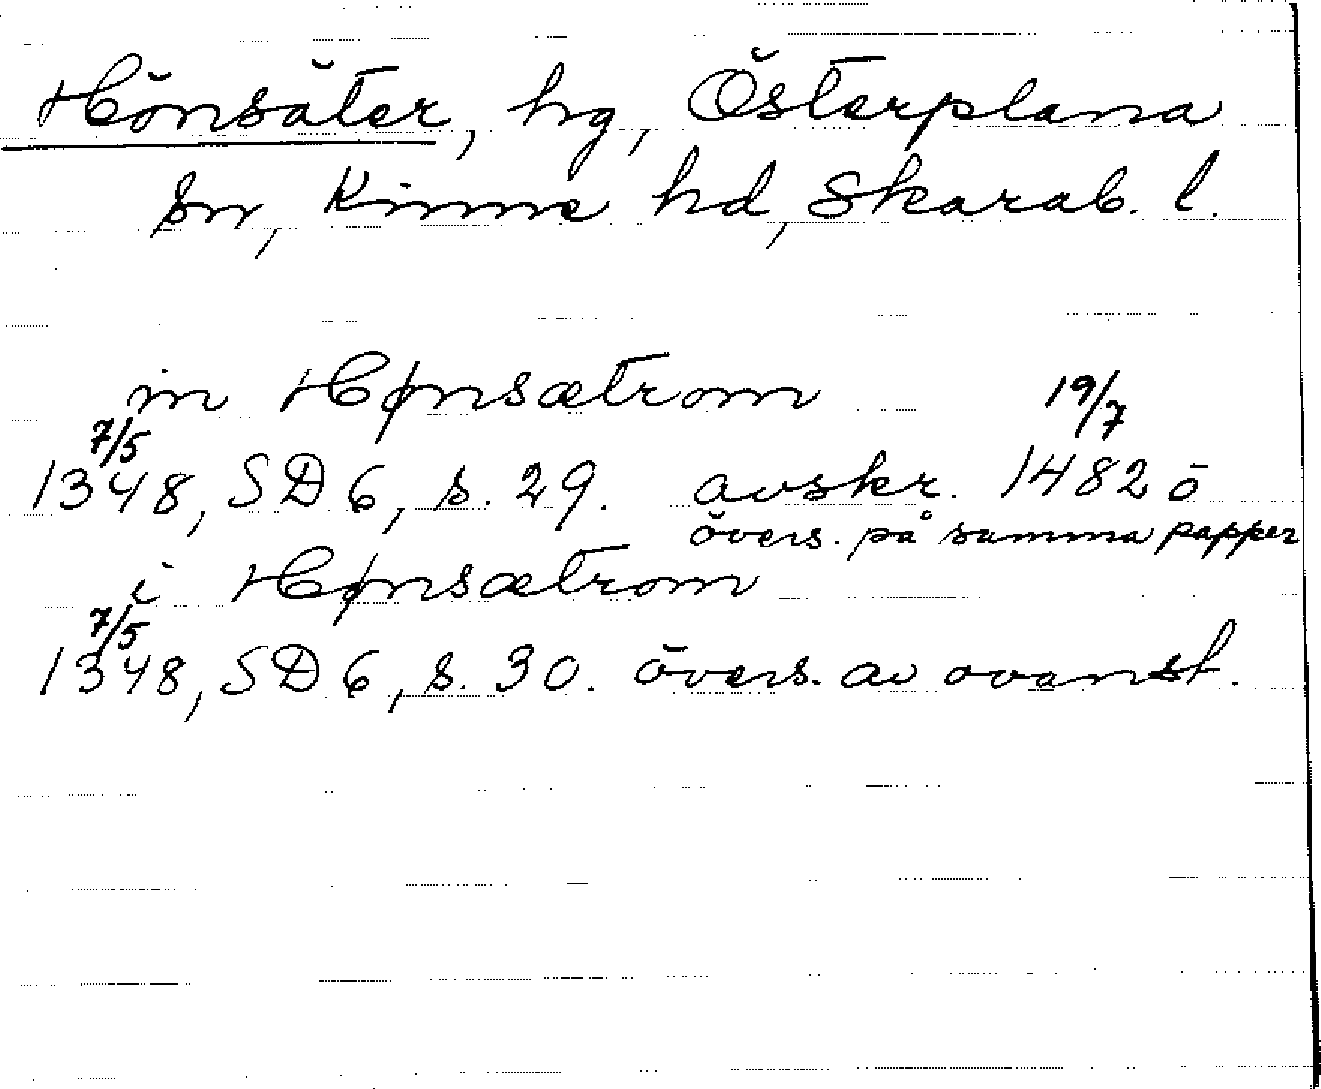 Hönsäter, hg, Österplana
sn, Kinne hd, Skarab. l.
in Hønsætrom
7/5 19/7
1348, SD 6, s. 29. avskr. 1482 ō
övers. på samma papper
i Hønsætrom
7/5
1348, SD 6, s. 30. övers. av ovanst.